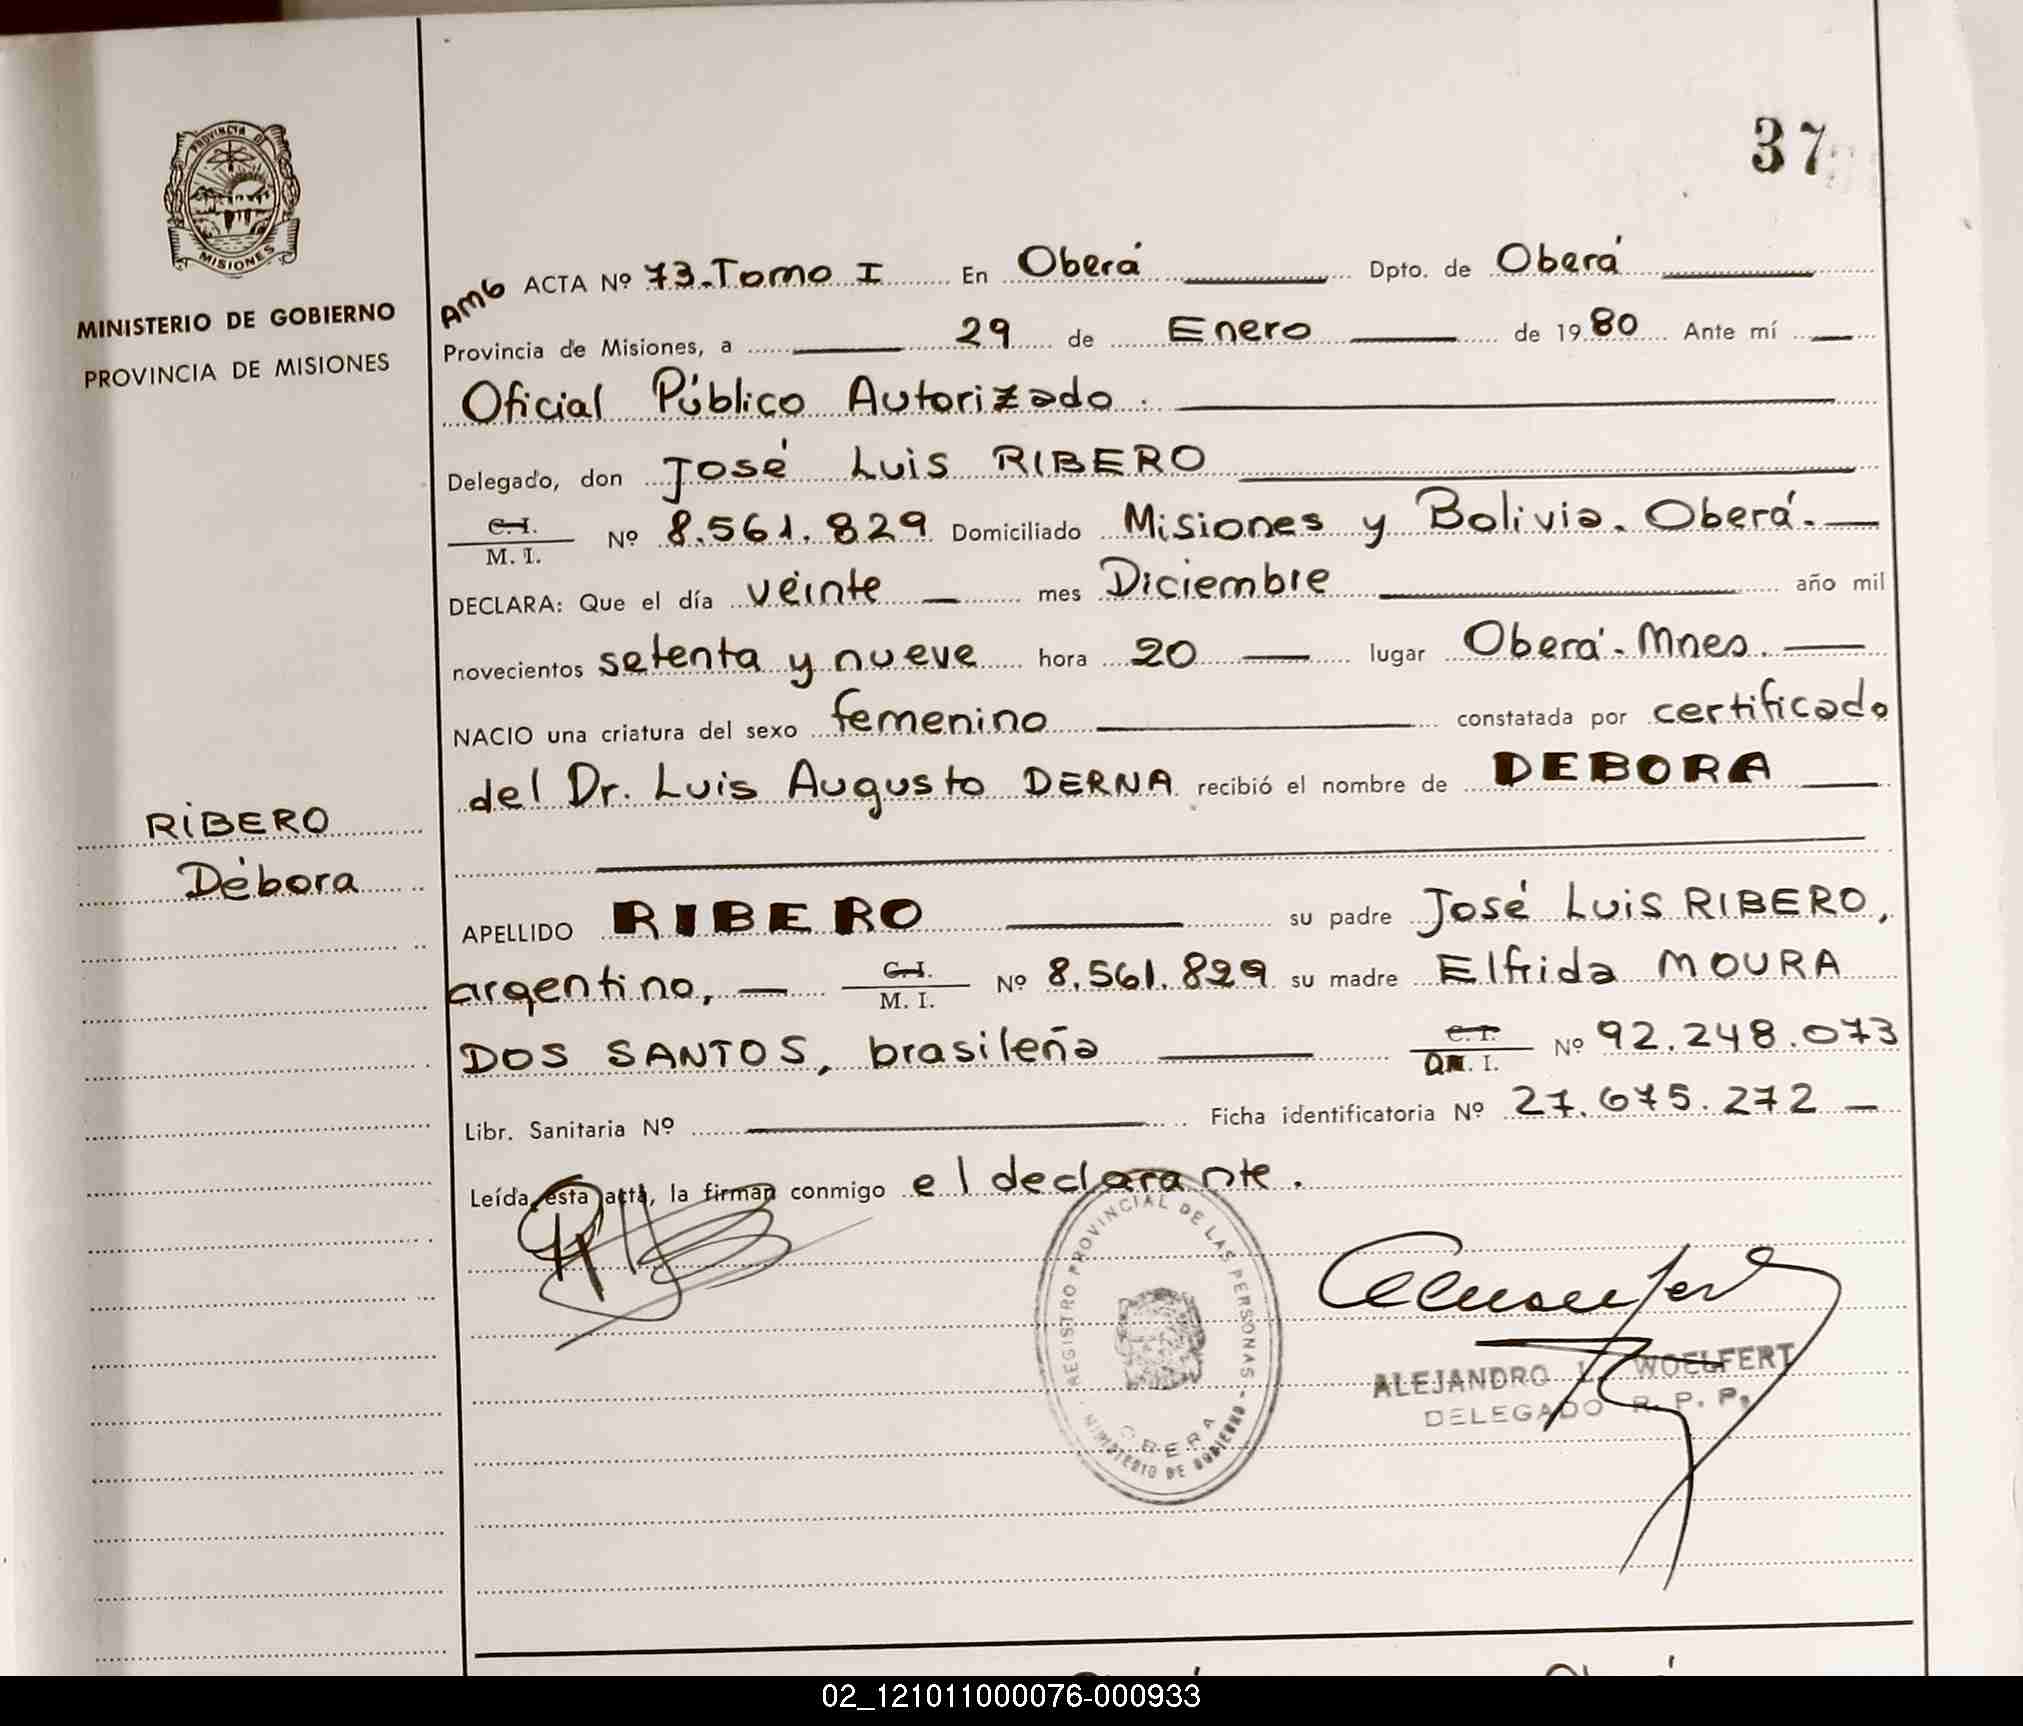 37
PROVINCIA DE
MISIONES
MINISTERIO DE GOBIERNO
PROVINCIA DE MISIONES
RIBERO
Débora
AMG ACTA Nº 73.Tomo I En Oberá Dpto. de Oberá
Provincia de Misiones, a 29 de Enero de 1980 Ante mí
Oficial Público Autorizado.
Delegado, don José Luis RIBERO
C.I.
M. I. Nº 8.561.829 Domiciliado Misiones y Bolivia. Oberá.
DECLARA: Que el día veinte mes Diciembre año mil
novecientos setenta y nueve hora 20 lugar Oberá. Mnes.
NACIO una criatura del sexo femenino constatada por certificado
del Dr. Luis Augusto DERNA recibió el nombre de DEBORA
APELLIDO RIBERO su padre José Luis RIBERO,
argentino, C.I. M. I. Nº 8.561.829 su madre Elfrida MOURA
DOS SANTOS, brasileña C.I. I. Nº 92.248.073
Libr. Sanitaria Nº Ficha identificatoria Nº 27.675.272
Leída esta acta, la firman conmigo el declarante.
REGISTRO PROVINCIAL DE LAS PERSONAS
OBERA
MINISTERIO DE GOBIERNO
ALEJANDRO L. WOELFERT
DELEGADO R. P. P.
02_121011000076-000933